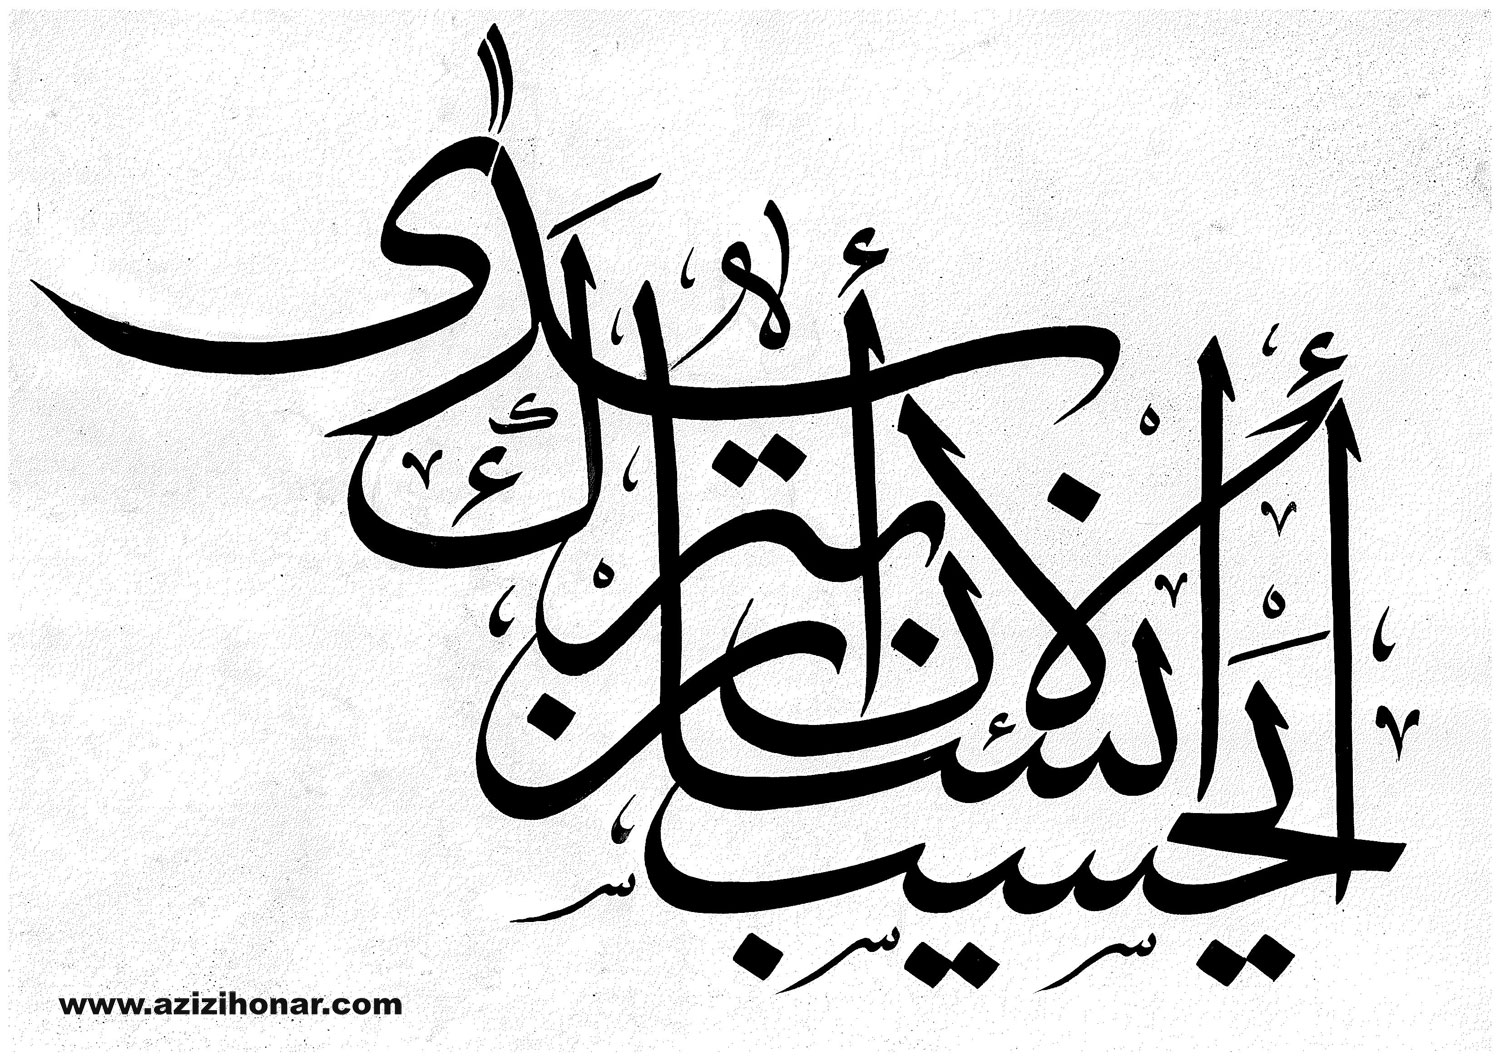 أيحسب الإنسان أن يترك سدى
www.azizihonar.com